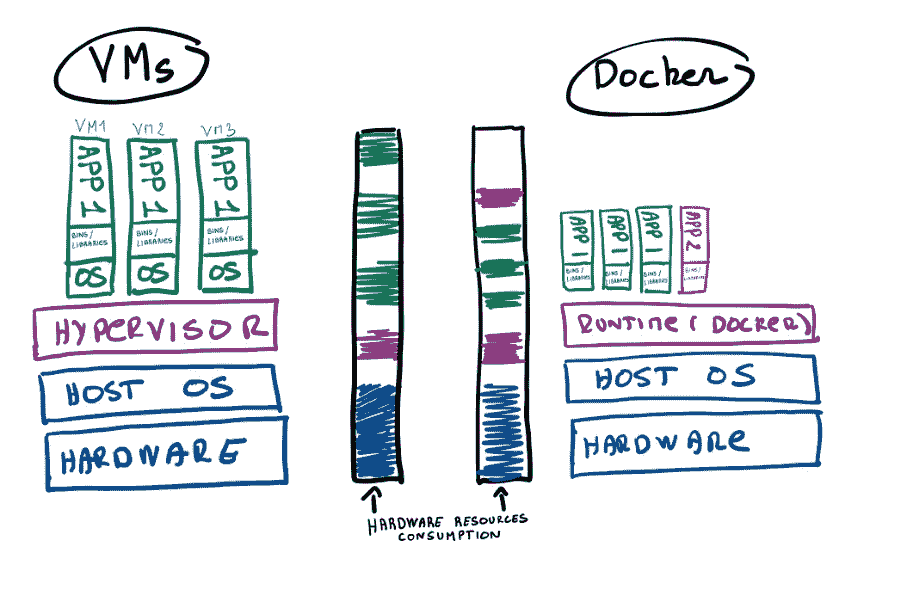 VMs
VM1
VM2
VM3
APP 1
BINS/
LIBRARIES
OS
APP 1
BINS/
LIBRARIES
OS
APP 1
BINS/
LIBRARIES
OS
HYPERVISOR
HOST OS
HARDWARE
HARDWARE RESOURCES
CONSUMPTION
Docker
APP 1
BINS/
LIBRARIES
APP 1
BINS/
LIBRARIES
APP 1
BINS/
LIBRARIES
APP 2
BINS/
LIBRARIES
RUNTIME (DOCKER)
HOST OS
HARDWARE